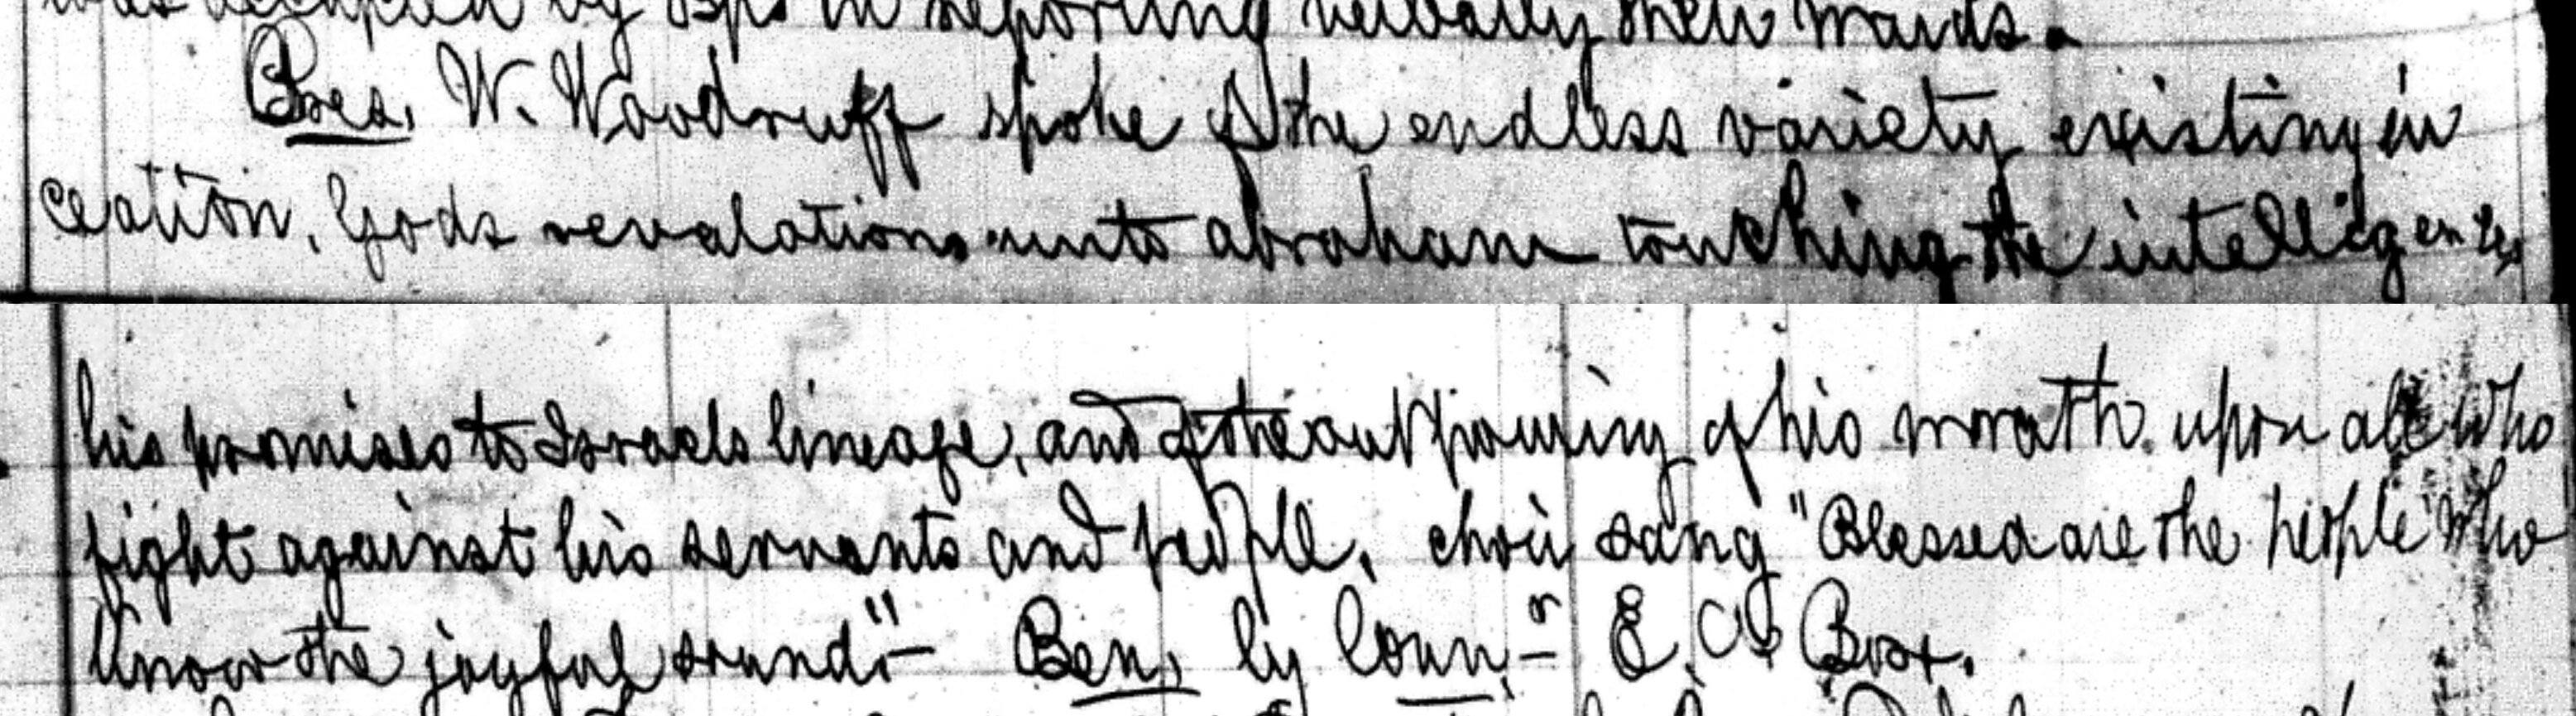 was occupied by Bps in reporting verbally their wards.
Pres. W. Woodruff spoke of the endless variety existing in
ceation, Gods revalations unto abraham touching the intelligences
his promises to Israels lineage, and of the outpouring of his wrath upon all who
fight against his servants and people, choir sang "Blessed are the people who
know the joyful sound"- Ben, by Coun-r E. C. Box.